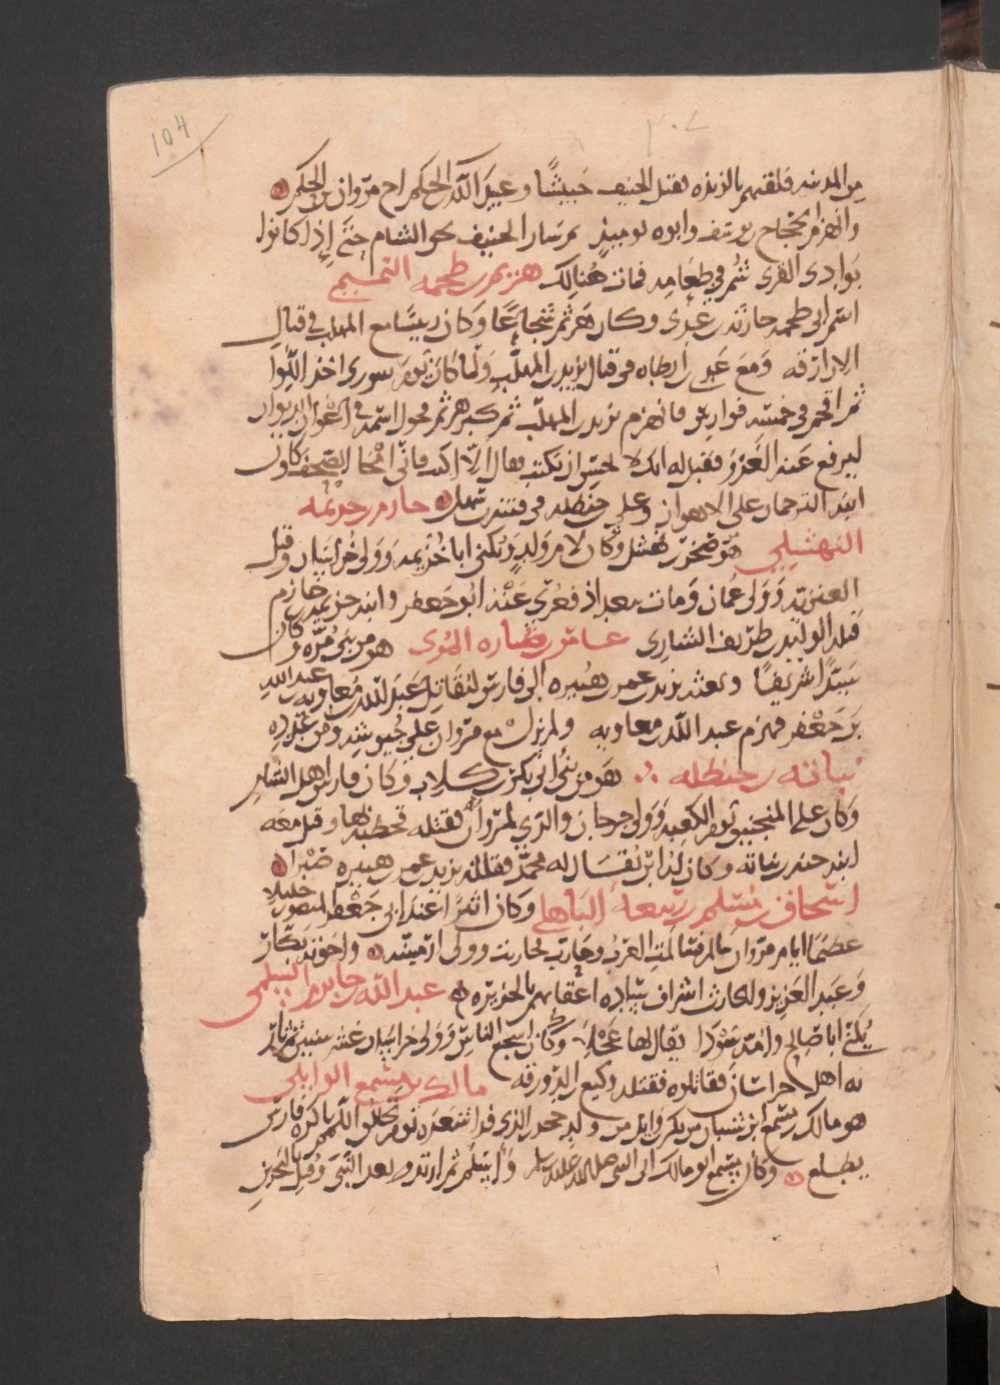 104
٢٠٧
من المدينه فلقيهم بالربذه فقتل الحنيف حبيشًا وعبيد الله بن الحكم اخ مروان بن الحكم
وانهزم الحجاج بن يوسف وابوه يوميذٍ ثم سار الحنيف نحو الشام حتى إذا كانوا
بوادى القرى سُمّ في طعامه فمات هُنالك هزيم بن طحمه التميمي
اسم ابى طحمه حارثه بن عدى وكان هزيم شجاعًا وكان رييسًا مع المهلب في قتال
الازارقه ومع عدى بن ارطاه فى قتال يزيد بن المهلّب ولما كان يوم سورى اخذ اللوا
ثم اقحم فى خمسه فوارس فانهزم يزيد بن المهلّب ثم كبر هزيم فحول اسمه في اعوان الديوان
ليرفع عنه الغزو فقيل له انك لا تحسن ان تكتب فقال الّا اكتب فانّى امحا الصحف وكان
ابنه الترجمان على الاهواز وعلى حنظله فى فتنه بن سهيل خازم بن خزيمه
النهشلي هو من صخر بن نهشل وكان لام ولدٍ ويُكنى ابا خُزيمه وولى خُراسان وقتل
العنزيه وولى عُمان ومات ببغداذ فعُزى عنه ابو جعفر وابنه خزيمه بن خازم
قتله الوليد بن طريف الشارى عامر بن ضباره المُرى هو من بنى مُرّه وكان
سيّدًا شريفًا وبعثه يزيد بن عمر بن هُبيره إلى فارس ليُقاتل عبد الله بن مُعاويه بن عبد الله
بن جعفر فهزم عبد الله بن معاويه ولم يزل مع مروان علي جُيوشه ومن عنده
نباته بن حنظله هو من بنى ابى بكر بن كلاب وكان فارس اهل الشام
وكان على المنجنيق يوم الكعبه وولى جرجان والرّي لمروان فقتله قحطبه بها وقتل معه
ابنه حيه بن نباته وكان له ابن يُقال له محمّد فقتله يزيد بن عمر بن هبيره صَبْرًا
اسحاق بن مسلم بن ربيعة الباهلي وكان اثيرًا عند ابى جعفر المنصور جليلا
عظيمًا ايام مروان قالم قيسًا لمّت العرب وحارب لحارث وولى ارمينيه واخوته بكّار
وعبد العزيز ولكلٍ اشراف ساده اعقابهم بالجزيره عبد الله بن خازم السلمي
يُكنى ابا صالح وامه سَوْدا يقال لها عَجْلَى وكان اشجع الناس وولى خراسان عشر سنين ثم ثار
به اهل خراسان فقاتلوه فقتله وكيع بن الدورقه مالك بن مسمع الوايلى
هو مالك بن مسمع ابن شيبان من بكر بن وايل من ولد جحدر الذى فدا شعره يوم تحلق اللّمم باكره فارس
يطلع وكان مسمع ابو مالك اتى النبى صلى الله عليه وسلم وأسلم ثم ارتد بعد النبىّ وقُتل بالبحرين